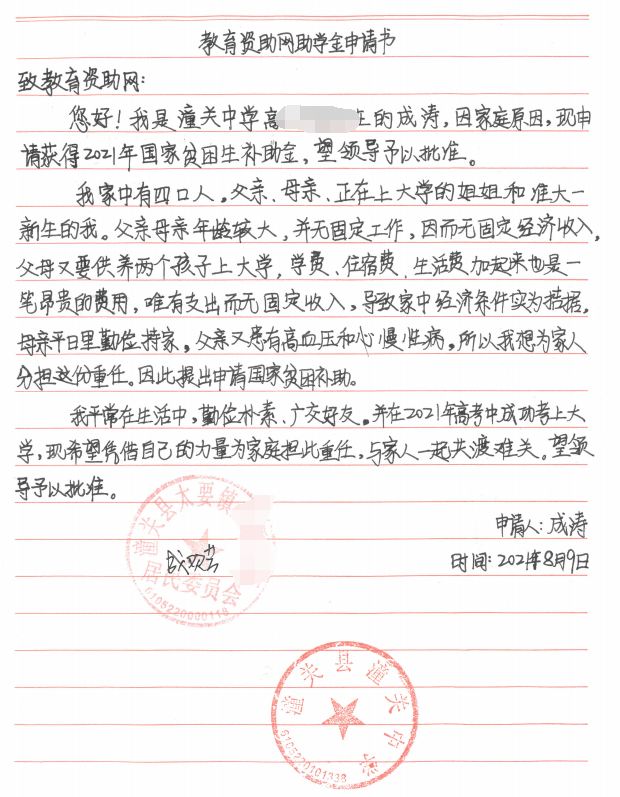 教育资助网助学金申请书
致教育资助网:
您好!我是潼关中学高 的成涛,因家庭原因,现申
请获得2021年国家贫困生补助金,望领导予以批准。
我家中有四口人。父亲、母亲、正在上大学的姐姐和准大一
新生的我。父亲母亲年龄较大,并无固定工作,因而无固定经济收入,
父母又要供养两个孩子上大学,学费、住宿费、生活费加起来也是一
笔昂贵的费用,唯有支出而无固定收入,导致家中经济条件实为拮据,
母亲平日里勤俭持家,父亲又患有高血压和心慢性病,所以我想为家人
分担这份重任。因此提出申请国家贫困补助。
我平常在生活中,勤俭朴素、广交好友。并在2021年高考中成功考上大
学,现希望凭借自己的力量为家庭担此重任,与家人一起共渡难关。望领
导予以批准。
申请人:成涛
时间:2021年8月9日
潼关县太要镇
居民委员会
6105220000118
潼关县潼关中学
6105220101338